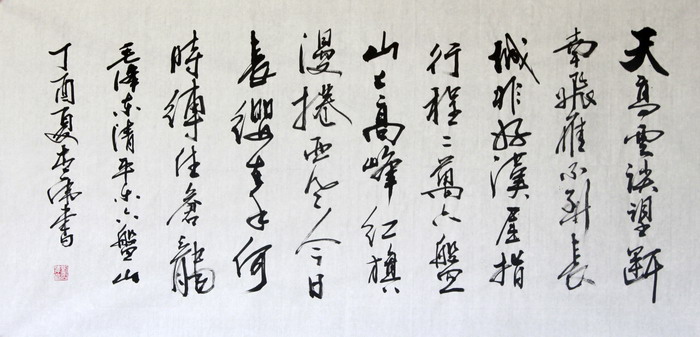 天高雲淡望斷
南飛雁不到長
城非好漢屈指
行程二萬六盤
山上高峰紅旗
漫捲西風今日
長纓在手何
時縛住蒼龍
毛澤東清平樂六盤山
丁酉夏李書